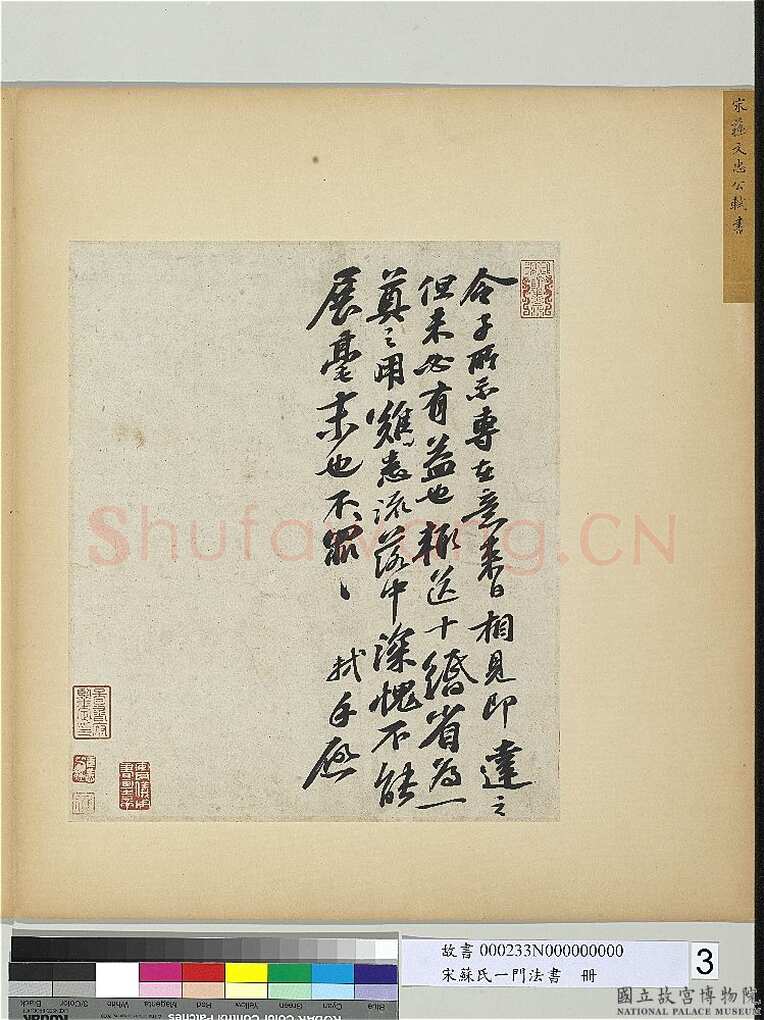 宋蘇文忠公軾書
令子所示專在意来日相見即達之
但未必有益也輒送十緡省為一
奠之用難患流落中深愧不能
展毫末也不罪〻 軾手啟
Shufawang.CN
故書 000233N000000000
宋蘇氏一門法書 冊
3
國立故宮博物院
NATIONAL PALACE MUSEUM
Black
3/Color
White
Magenta
Red
Yellow
Green
Cyan
Blue
KODAK Color Control Patches